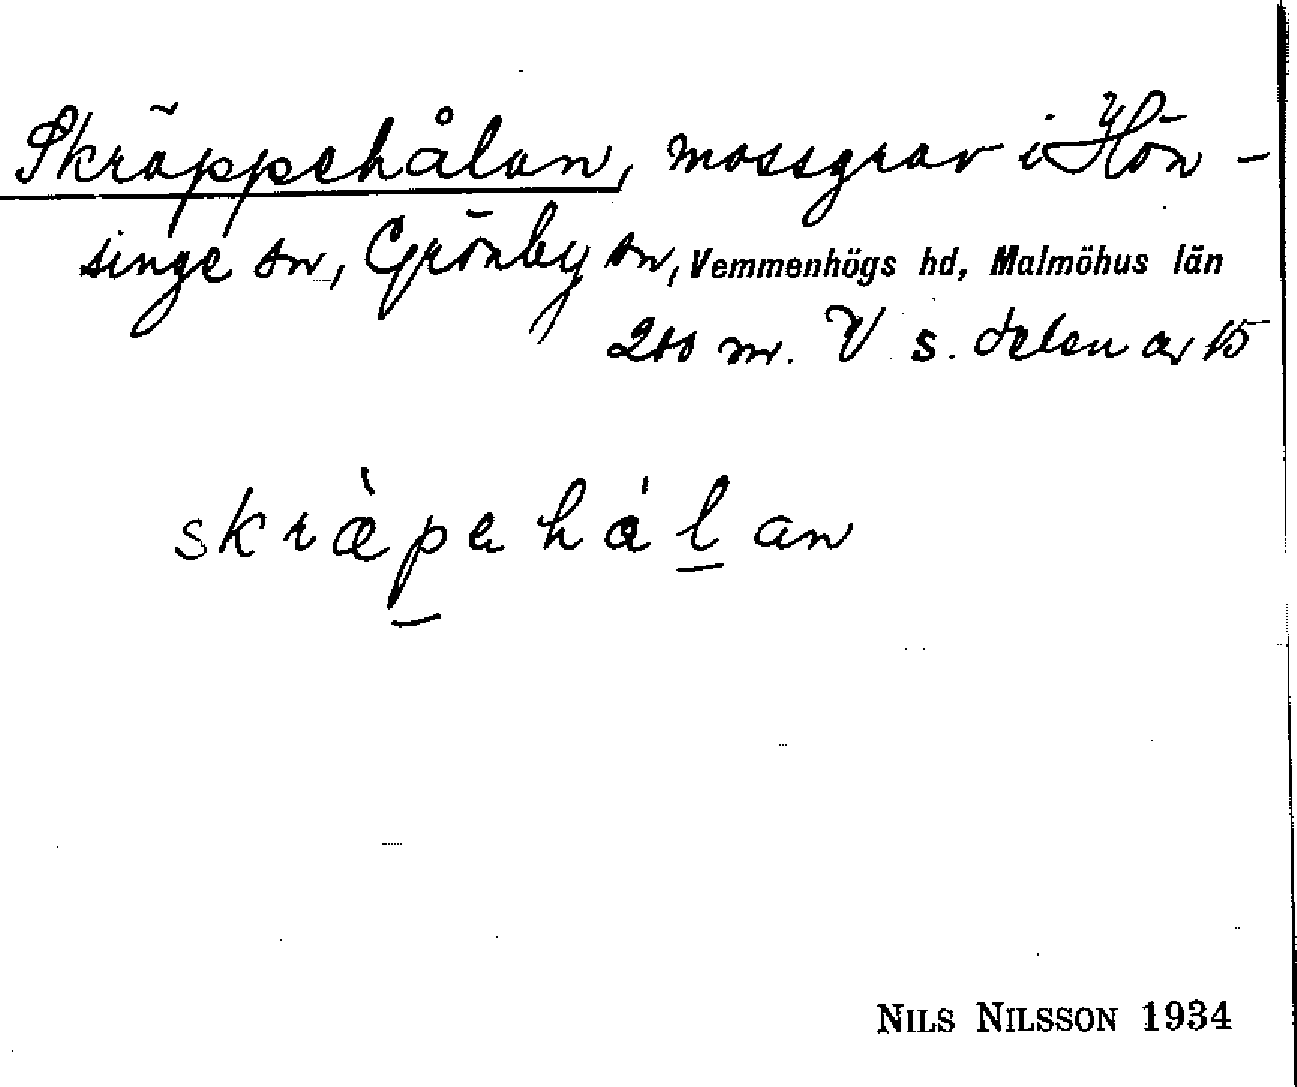 Skräppehålan, mossgrav i Hön-
singe sn, Grönby sn, Vemmenhögs hd, Malmöhus län
200 m. V s. delen av 15
skræ̀pe hálan
NILS NILSSON 1934